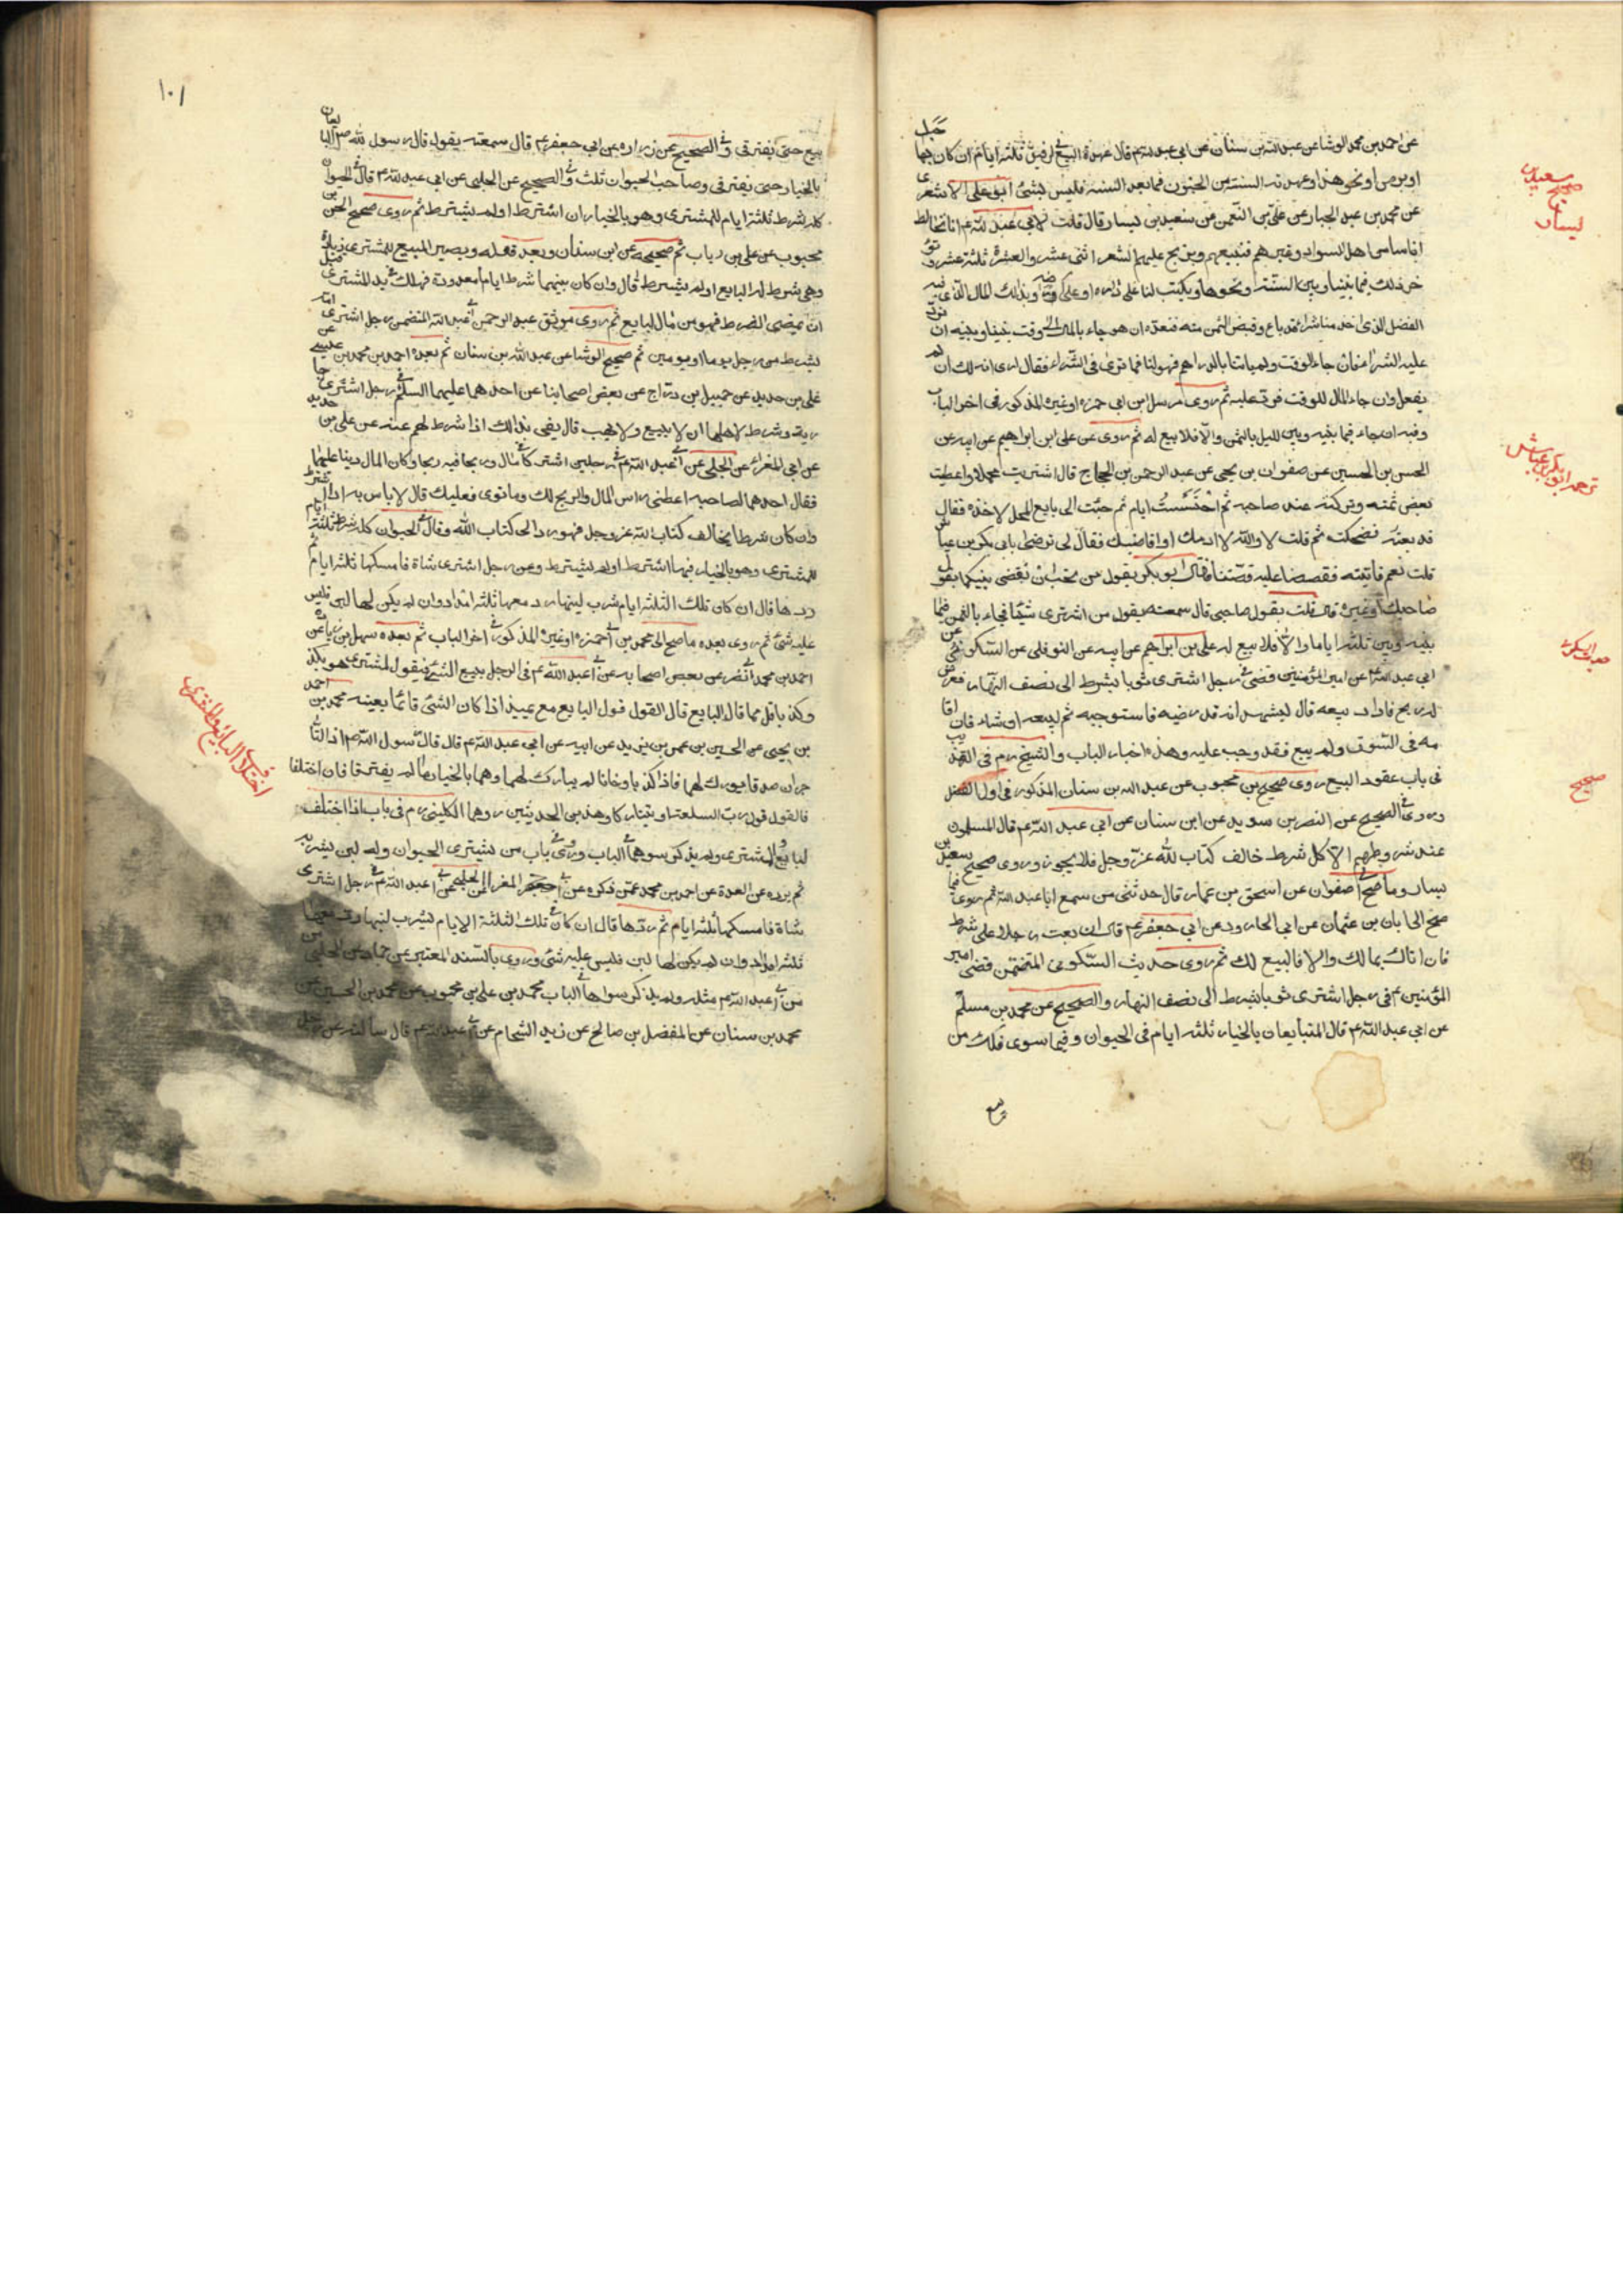 عن احمد بن محمد الوشا عن عبد الله بن سنان عن ابي عبد الله ع قال عهدة البيع في الرقيق ثلثة ايام ان كان بها حبل
او برص او نحو هذا وعهدته السنة من الجنون فما بعد السنة فليس بشئ ابو علي الاشعري
عن محمد بن عبد الجبار عن علي بن النعمن عن سعيد بن يسار قال قلت لابي عبد الله ع انا نخالط
اناسا من اهل السواد وغيرهم فنبيعهم ونربح عليهم العشر اثنى عشر والعشرة ثلثة عشر ونوخر
ذلك فيما بيننا وبين السنة ونحوها ويكتب لنا على داره او على ارضه بذلك المال الذي فيه
الفضل الذي اخذ منا شراء قد باع وقبض الثمن منه فنعده ان هو جاء بالمال الى وقت بيننا وبينه ان نرد
عليه الشراء فان جاء الوقت ولم ياتنا بالدراهم فهو لنا فما ترى في الشراء فقال ارى انه لك ان لم
يفعل وان جاء بالمال للوقت فرد عليه ثم روى مرسل ابن ابي حمزة او غيره المذكور في اخر الباب
وفيه ان جاء فيما بينه وبين الليل بالثمن والا فلا بيع له ثم روى عن علي بن ابراهيم عن ابيه عن
الحسن بن الحسين عن صفوان بن يحيى عن عبد الرحمن بن الحجاج قال اشتريت محملا واعطيت
بعض ثمنه وتركته عند صاحبه ثم احتبست ايام ثم جئت الى بايع المحمل لاخذه فقال
قد بعته فضحكت ثم قلت لا والله لا ادعك او اقاضيك فقال لي ترضى بابي بكر بن عياش
قلت نعم فاتيته فقصصنا عليه قصتنا فقال ابو بكر بقول من تحب ان نقضي بينكما بقول
صاحبك او غيره قال قلت بقول صاحبي قال سمعته يقول من اشترى شيئا فجاء بالثمن فيما
بينه وبين ثلثة ايام والا فلا بيع له علي بن ابراهيم عن ابيه عن النوفلي عن السكوني عن
ابي عبد الله ع ان امير المؤمنين قضى في رجل اشترى ثوبا بشرط الى نصف النهار فعرض
له ربح فاراد بيعه قال ليشهد انه قد رضيه فاستوجبه ثم ليبعه ان شاء فان اقا
مه في السوق ولم يبع فقد وجب عليه وهذه اخبار الباب والشيخ ره في التهذيب
في باب عقود البيع روى صحيح بن محبوب عن عبد الله بن سنان المذكور في اول الفصل
وروى في الصحيح عن النضر بن سويد عن ابن سنان عن ابي عبد الله ع قال المسلمون
عند شروطهم الا كل شرط خالف كتاب الله عز وجل فلا يجوز وروى صحيح سعيد بن
يسار وما صح الى صفوان عن اسحق بن عمار قال حدثنى من سمع ابا عبد الله ثم روى فيما
صح الى ابان بن عثمان عن ابي الجارود عن ابي جعفر ع قال ان بعت رجلا على شرط
فان اتاك بمالك والا فالبيع لك ثم روى حديث السكوني المتضمن قضى امير
المؤمنين ع في رجل اشترى ثوبا بشرط الى نصف النهار والصحيح عن محمد بن مسلم
عن ابي عبد الله ع قال المتبايعان بالخيار ثلثة ايام في الحيوان وفيما سوى ذلك من
سعيد بن
صحيح
يسار
ترجمة ابو بكر بن عياش
حديث السكوني
صحيح
١٠١
بيع حتى يفترقا وفي الصحيح عن زرارة عن ابي جعفر ع قال سمعته يقول قال رسول الله ص البايعان
بالخيار حتى يفترقا وصاحب الحيوان ثلث وفي الصحيح عن الحلبي عن ابي عبد الله ع قال في الحيوان
كله شرط ثلثة ايام للمشترى وهو بالخيار ان اشترط او لم يشترط ثم روى صحيح الحسن بن
محبوب عن علي بن رياب ثم صحيحه عن ابن سنان وبعد قوله ويصير المبيع للمشترى زيادة
وهي شرط له البايع او لم يشترط قال وان كان بينهما شرط ايام معدودة فهلك في يد المشترى قبل
ان يمضى الشرط فهو من مال البايع ثم روى موثق عبد الرحمن بن ابي عبد الله المتضمن رجل اشترى امة
بشرط من رجل يوما او يومين ثم صحيح الوشا عن عبد الله بن سنان ثم بعده احمد بن محمد بن عيسى عن
علي بن حديد عن جميل بن دراج عن بعض اصحابنا عن احدهما عليهما السلم في رجل اشترى جا
رية وشرط لاهلها ان لا يبيع ولا يهب قال يفي بذلك اذا شرط لهم عنه عن علي بن حديد
عن ابي المغراء عن الحلبي عن ابي عبد الله ع في رجلين اشتركا في مال وربحا فيه ربحا وكان المال دينا عليهما
فقال احدهما لصاحبه اعطني راس المال والربح لك وما توى فعليك قال لا باس به اذا اشترط
وان كان شرطا يخالف كتاب الله عز وجل فهو رد الى كتاب الله وقال في الحيوان كله شرط ثلثة ايام
للمشترى وهو بالخيار فيها اشترط او لم يشترط وعن رجل اشترى شاة فامسكها ثلثة ايام ثم
ردها قال ان كان تلك الثلثة ايام شرب لبنها رد معها ثلثة امداد وان لم يكن لها لبن فليس
عليه شئ ثم روى بعده ما صح الى محمد بن ابي حمزة او غيره المذكور في اخر الباب ثم بعده سهل بن زياد عن
احمد بن محمد بن ابي نصر عن بعض اصحابه عن ابي عبد الله ع في الرجل يبيع الشئ فيقول المشترى هو بكذا
وكذا باقل مما قال البايع قال القول قول البايع مع يمينه اذا كان الشئ قائما بعينه محمد بن احمد
بن يحيى عن الحسين بن عمر بن يزيد عن ابيه عن ابي عبد الله ع قال قال رسول الله ص اذا التا
جران صدقا بورك لهما فاذا كذبا وخانا لم يبارك لهما وهما بالخيار ما لم يفترقا فان اختلفا
فالقول قول رب السلعة او يتتاركا وهذين الحديثين رواهما الكليني ره في باب اذا اختلف
البايع والمشترى ولم يذكر سوهما في الباب وروى في باب من يشترى الحيوان وله لبن يشربه
ثم يرده عن العدة عن احمد بن محمد عمن ذكره عن ابي المغرا عن الحلبي عن ابي عبد الله ع في رجل اشترى
شاة فامسكها ثلثة ايام ثم ردها قال ان كان في تلك الثلثة الايام يشرب لبنها رد معها
ثلثة امداد وان لم يكن لها لبن فليس عليه شئ وروى بالسند المعتبر عن حماد عن الحلبي
عن ابي عبد الله ع مثله ولم يذكر سواها في الباب محمد بن علي بن محبوب عن محمد بن الحسين عن
محمد بن سنان عن المفضل بن صالح عن زيد الشحام عن ابي عبد الله ع قال سالته عن رجل
في اختلاف البائع والمشترى